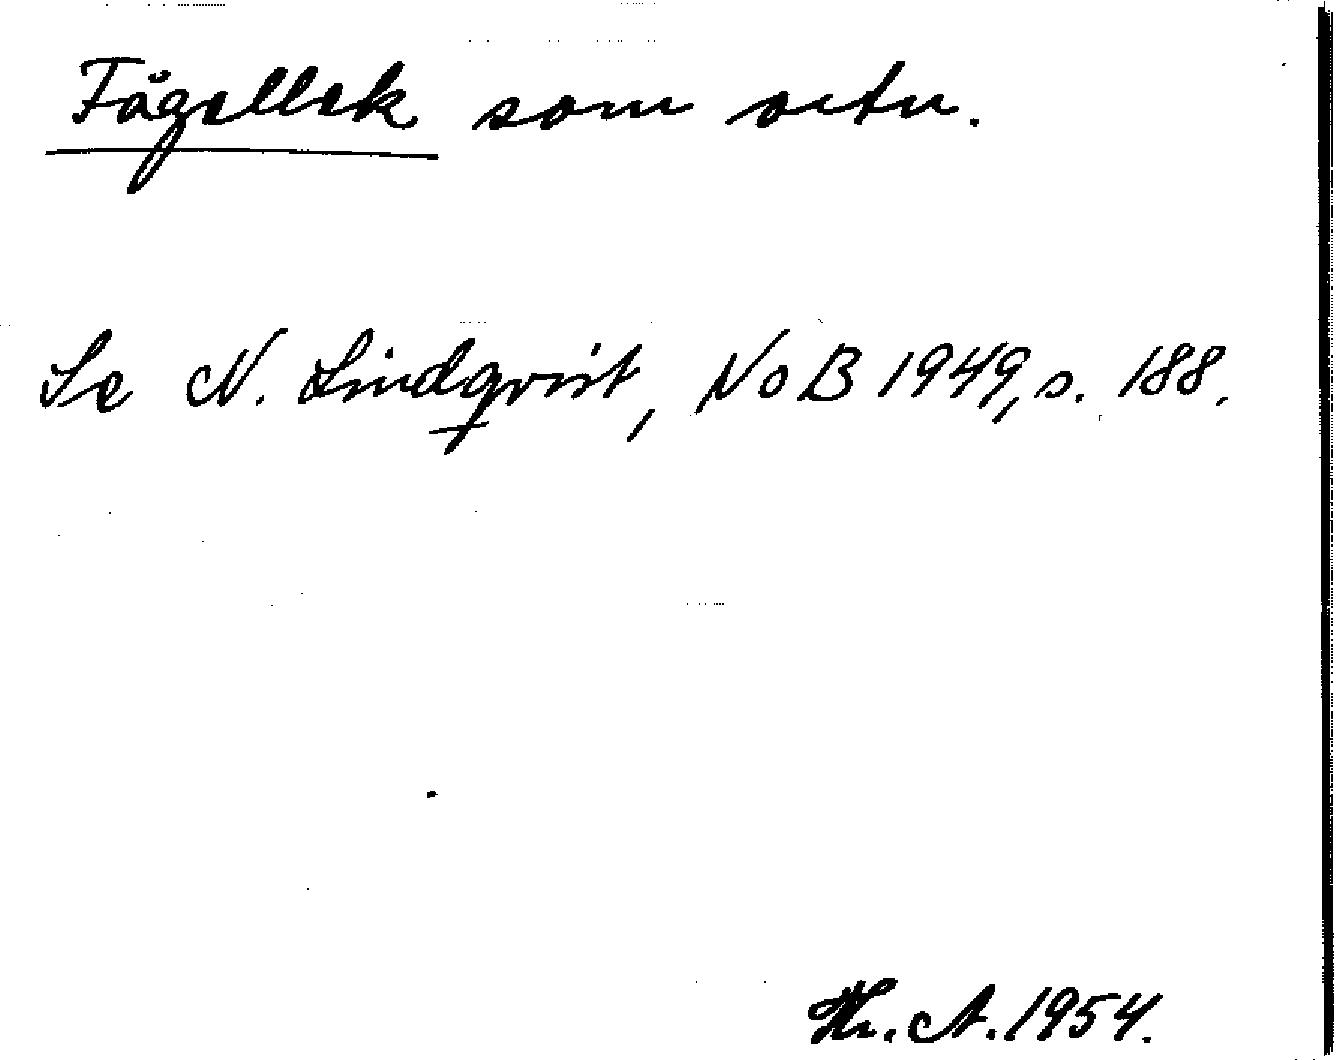 Fågellek som ortn.
Se N. Lindqvist, NoB 1949, s. 188.
A. 1954.